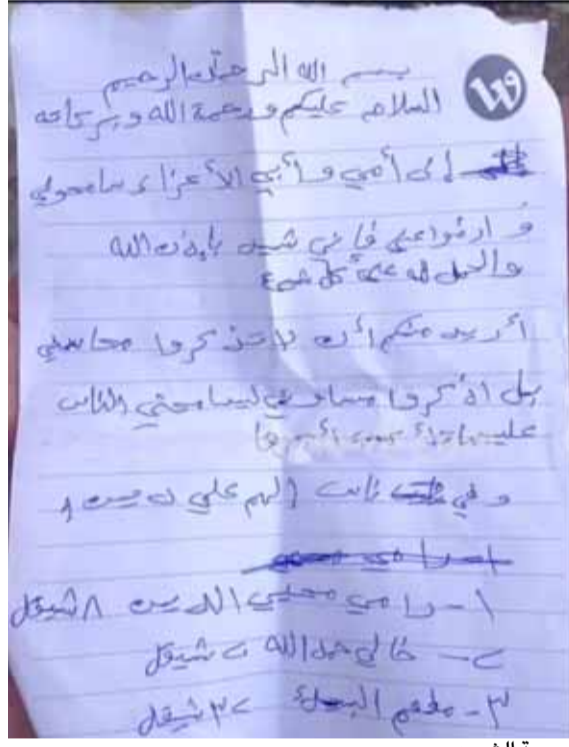 بسم الله الرحمن الرحيم
السلام عليكم ورحمة الله وبركاته
إلى أمي وأبي الأعزاء سامحوني
و ارضوا عني فإني شهيد بإذن الله
والحمد لله على كل شيء
أريد منكم أن لا تذكروا محاسني
بل اذكروا مساوئي ليسامحني الناس
عليها
و في ناس إلهم علي دين
١- رامي محيي الدين ٨ شيقل
٢- خالي عبد الله ٢ شيقل
٣- مطعم ٢٣ شيقل